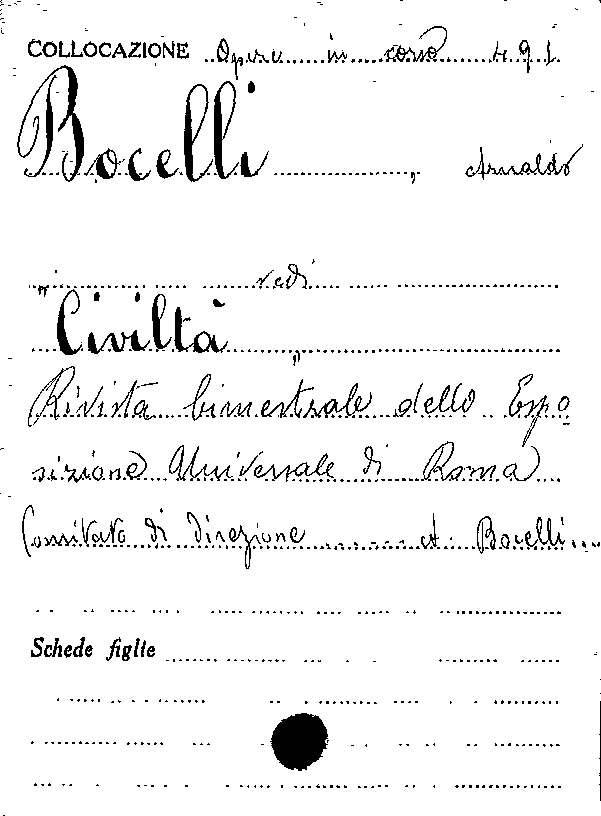 COLLOCAZIONE Opere in corso 491
Bocelli, Arnaldo
vedi
"Civiltà"
Rivista bimestrale dello Espo-
sizione Universale di Roma
Comitato di direzione ...... A. Bocelli...
Schede figlie